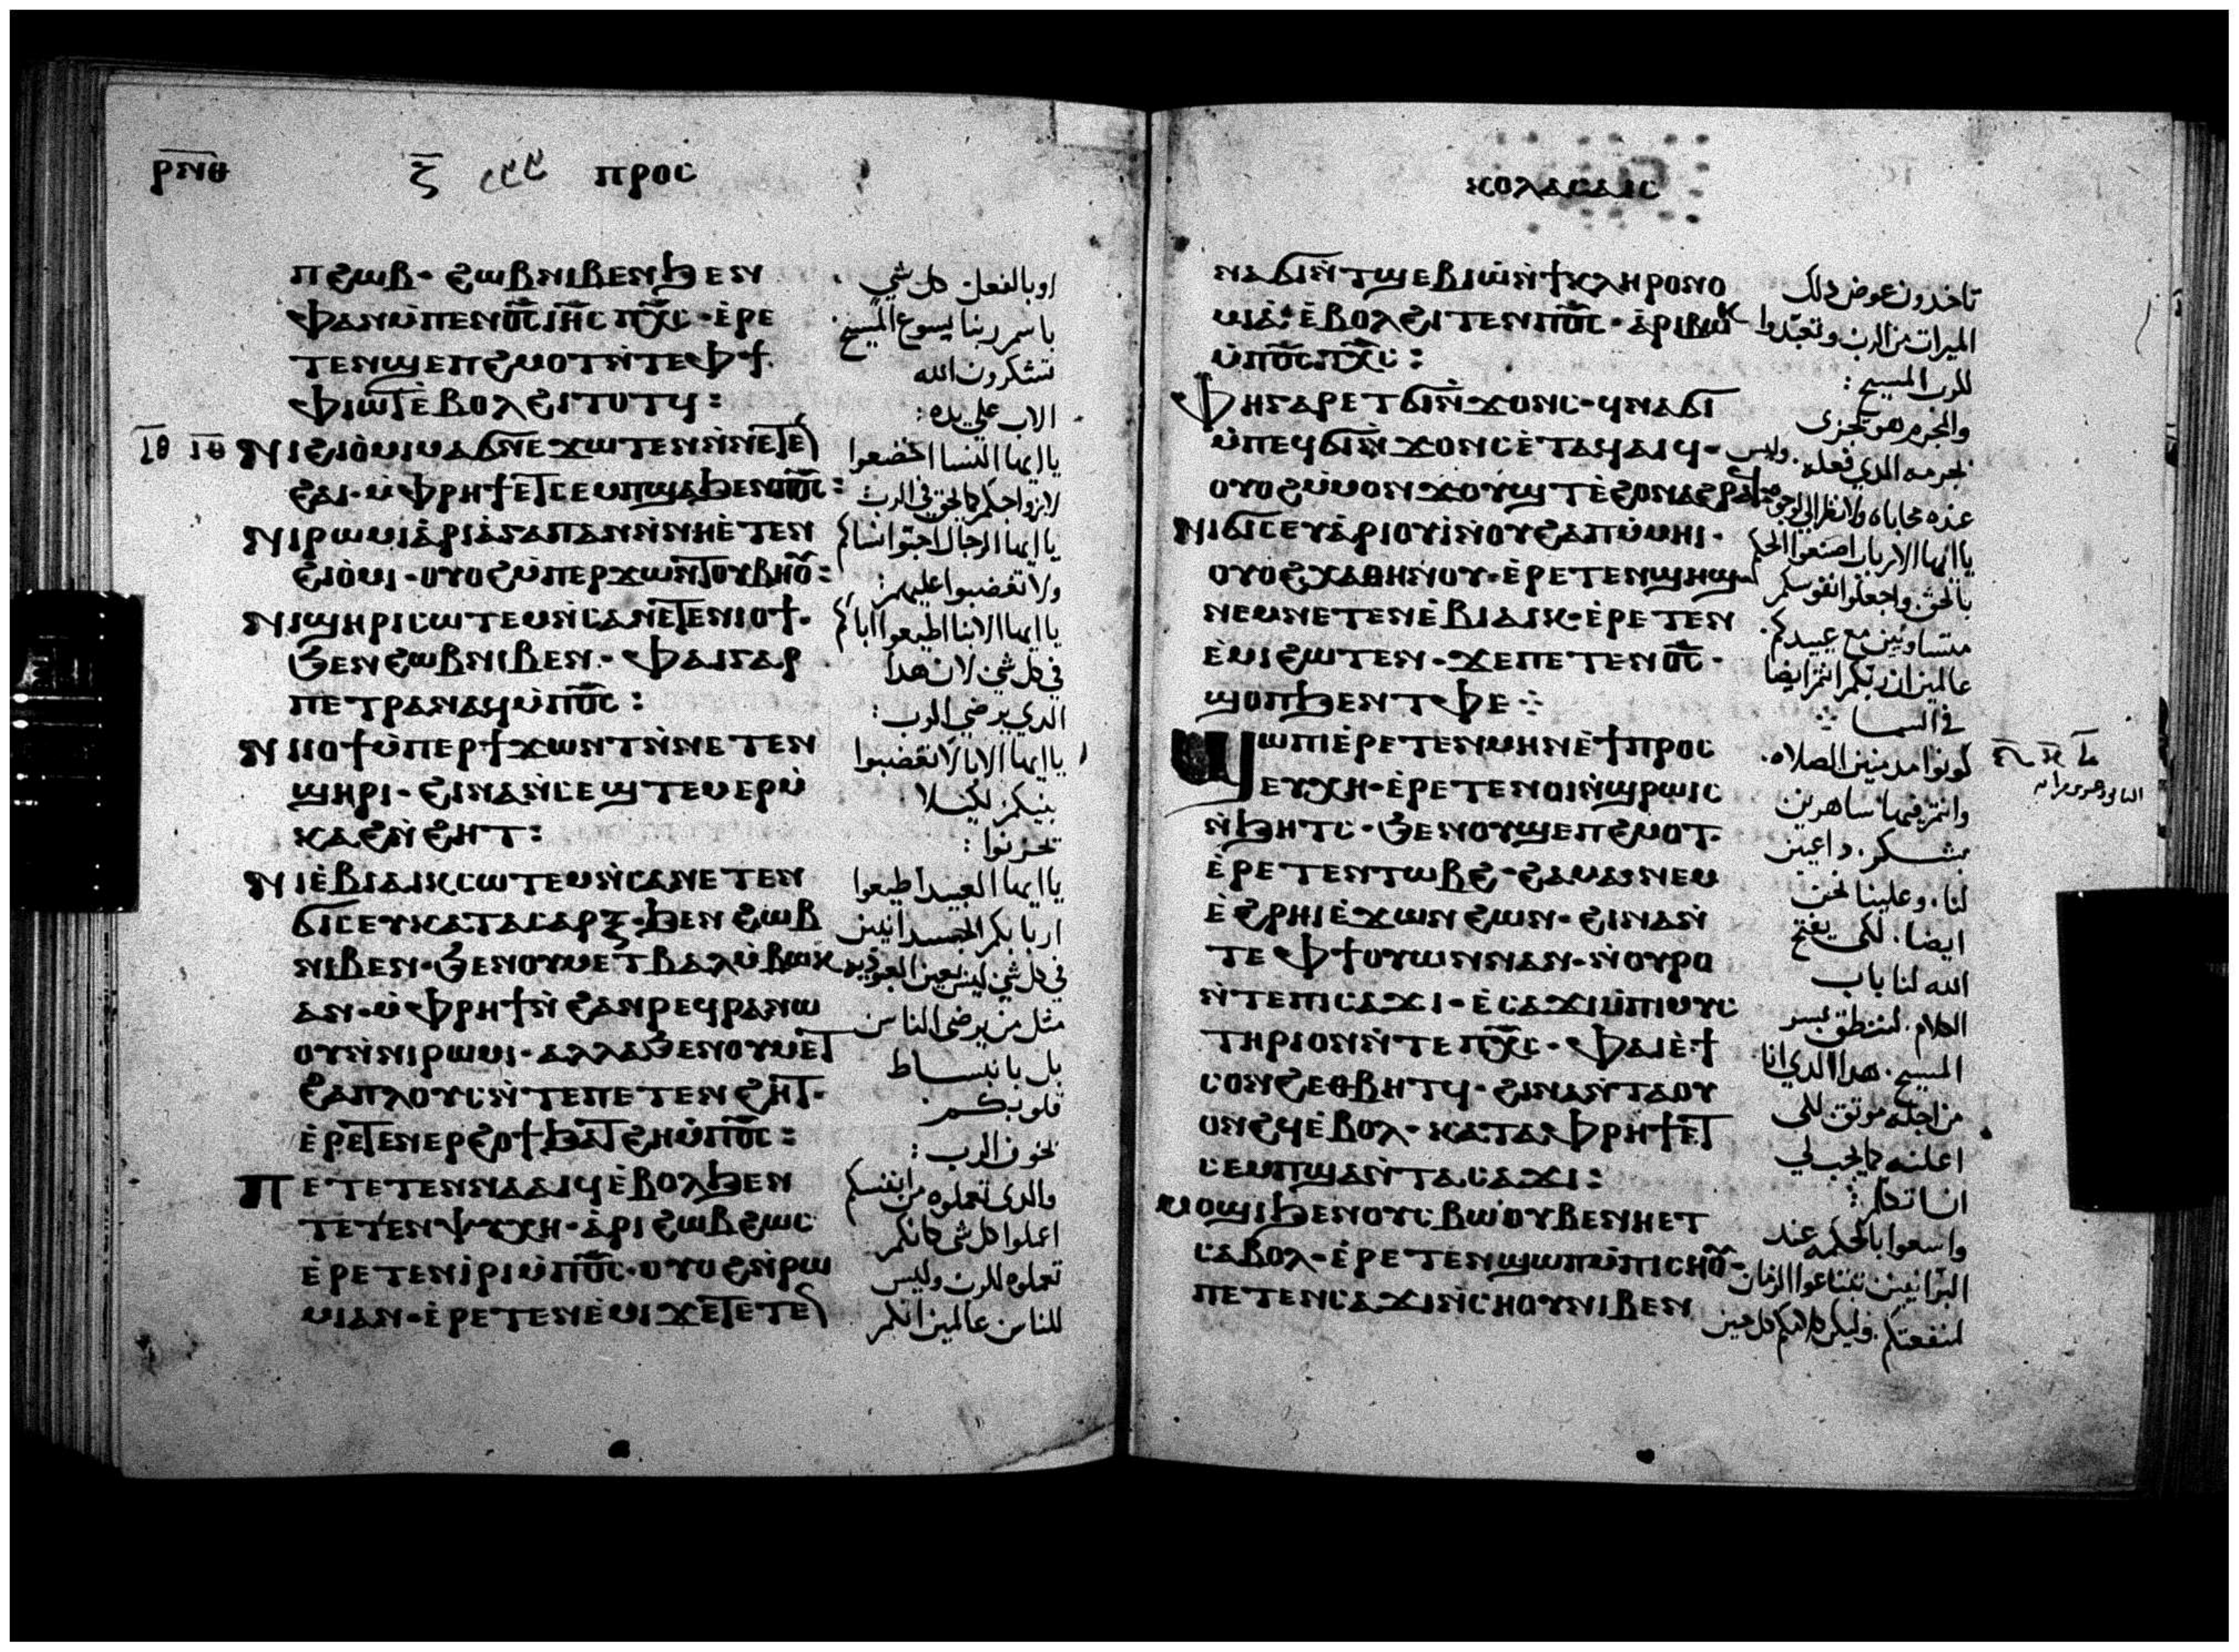 ⲣⲛⲑ ⲝ̅ ⲡⲣⲟⲥ
ⲡϩⲱⲃ · ϩⲱⲃ ⲛⲓⲃⲉⲛ ϧⲉⲛ
ⲫⲣⲁⲛ ⲙ̀ⲡⲉⲛⲟ̅ⲥ̅ ⲓⲏ̅ⲥ̅ ⲡⲭ̅ⲥ̅ · ⲉ̀ⲣⲉ
ⲧⲉⲛϣⲉⲡϩⲙⲟⲧ ⲛ̀ⲧⲉ ⲫϯ
ⲫⲓⲱⲧ ⲉ̀ⲃⲟⲗ ϩⲓⲧⲟⲧϥ :
ⲓⲑ ⲓⲑ ⲛⲓϩⲓⲟ̀ⲙⲓ ⲙⲁϭⲛⲉϫⲱⲧⲉⲛ ⲛ̀ⲛⲉⲧⲉⲛ
ϩⲁⲓ · ⲙ̀ⲫⲣⲏϯ ⲉⲧⲥⲉⲙⲡϣⲁ ϧⲉⲛ ⲡⲟ̅ⲥ̅ :
ⲛⲓⲣⲱⲙⲓ ⲁ̀ⲣⲓⲁ̀ⲅⲁⲡⲁⲛ ⲛ̀ⲛⲏⲉ̀ⲧⲉⲛ
ϩⲓⲟ̀ⲙⲓ · ⲟⲩⲟϩ ⲙ̀ⲡⲉⲣϫⲱⲛⲧ ⲟⲩⲃⲏⲟ̅ⲩ :
ⲛⲓϣⲏⲣⲓ ⲥⲱⲧⲉⲙ ⲛ̀ⲥⲁ ⲛⲉⲧⲉⲛⲓⲟϯ ·
ϧⲉⲛ ϩⲱⲃ ⲛⲓⲃⲉⲛ · ⲫⲁⲓ ⲅⲁⲣ
ⲡⲉⲧⲣⲁⲛⲁϥ ⲙ̀ⲡⲟ̅ⲥ̅ :
ⲛⲓⲓⲟϯ ⲙ̀ⲡⲉⲣϯϫⲱⲛⲧ ⲛ̀ⲛⲉⲧⲉⲛ
ϣⲏⲣⲓ · ϩⲓⲛⲁ ⲛ̀ⲥⲉϣⲧⲉⲙⲉⲣⲙ̀
ⲕⲁϩ ⲛ̀ϩⲏⲧ :
ⲛⲓⲉ̀ⲃⲓⲁⲓⲕ ⲥⲱⲧⲉⲙ ⲛ̀ⲥⲁ ⲛⲉⲧⲉⲛ
ϭⲓⲥⲉⲩ ⲕⲁⲧⲁ ⲥⲁⲣⲝ · ϧⲉⲛ ϩⲱⲃ
ⲛⲓⲃⲉⲛ · ϧⲉⲛ ⲟⲩⲙⲉⲧⲃⲁⲗ ⲙ̀ⲃⲱⲕ
ⲁⲛ · ⲙ̀ⲫⲣⲏϯ ⲛ̀ϩⲁⲛⲣⲉϥⲣⲁⲛⲱ
ⲟⲩⲛ̀ⲛⲓⲣⲱⲙⲓ · ⲁⲗⲗⲁ ϧⲉⲛ ⲟⲩⲙⲉⲧ
ϩⲁⲡⲗⲟⲩⲥ ⲛ̀ⲧⲉ ⲡⲉⲧⲉⲛϩⲏⲧ ·
ⲉ̀ⲣⲉⲧⲉⲛⲉⲣϩⲟϯ ϧⲁⲧϩⲏ ⲙ̀ⲡⲟ̅ⲥ̅ :
ⲡⲉⲧⲉⲧⲉⲛⲛⲁⲁⲓϥ ⲉ̀ⲃⲟⲗ ϧⲉⲛ
ⲧⲉⲧⲉⲛⲯⲩⲭⲏ · ⲁ̀ⲣⲓϩⲱⲃ ϩⲱⲥ
ⲉ̀ⲣⲉⲧⲉⲛⲓ̀ⲣⲓ ⲙ̀ⲡⲟ̅ⲥ̅ · ⲟⲩⲟϩ ⲛ̀ⲣⲱ
ⲙⲓ ⲁⲛ · ⲉ̀ⲣⲉⲧⲉⲛⲉ̀ⲙⲓ ϫⲉ ⲧⲉⲧⲉⲛ
اوبالفعل كل شي
باسم ربنا يسوع المسيح
تشكرون الله
الاب علي يده :
يا ايها النسا اخضعوا
لازواجكم كما يحق في الرب
يا ايها الرجال احبوا نساكم
ولا تغضبوا عليهم :
يا ايها الابنا اطيعوا اباكم
في كل شي لان هدا
الدي يرضي الرب :
يا ايها الابا لا تغضبوا
بنيكم لكيلا
تحزنوا :
يا ايها العبيد اطيعوا
اربابكم الجسدانيين
في كل شي ليس بعين العبوديه
مثل من يرضي الناس
بل بانبساط
قلوبكم
بخوف الرب :
والدي تعملوه من انفسكم
اعملوا كل شي كانكم
تعملوه للرب وليس
للناس عالمين انكم
ⲕⲟⲗⲁⲥⲁⲓⲥ
ⲛⲁϭⲓ ⲛ̀ⲧϣⲉⲃⲓⲱ̀ ⲛ̀ϯⲕⲗⲏⲣⲟⲛⲟ
ⲙⲓⲁ̀ · ⲉ̀ⲃⲟⲗ ϩⲓⲧⲉⲛ ⲡⲟ̅ⲥ̅ · ⲁ̀ⲣⲓⲃⲱⲕ
ⲙ̀ⲡⲟ̅ⲥ̅ ⲡⲭ̅ⲥ̅ :
ⲫⲏ ⲅⲁⲣ ⲉⲧϭⲓ ⲛ̀ϫⲟⲛⲥ · ϥⲛⲁϭⲓ
ⲙ̀ⲡⲉϥϭⲓ ⲛ̀ϫⲟⲛⲥ ⲉ̀ⲧⲁϥⲁⲓϥ ·
ⲟⲩⲟϩ ⲙ̀ⲙⲟⲛ ϫⲟⲩϣⲧ ⲉ̀ϩⲟ ⲛⲁϩⲣⲁϥ
ⲛⲓϭⲓⲥⲉⲩ ⲁ̀ⲣⲓⲟⲩⲓ̀ ⲛ̀ⲟⲩϩⲁⲡ ⲙ̀ⲙⲏⲓ ·
ⲟⲩⲟϩ ⲭⲁⲑⲏⲛⲟⲩ · ⲉ̀ⲣⲉⲧⲉⲛϣⲏϣ
ⲛⲉⲙ ⲛⲉⲧⲉⲛⲉ̀ⲃⲓⲁⲓⲕ · ⲉ̀ⲣⲉⲧⲉⲛ
ⲉ̀ⲙⲓ ϩⲱⲧⲉⲛ · ϫⲉ ⲡⲉⲧⲉⲛⲟ̅ⲥ̅ ·
ϣⲟⲡ ϧⲉⲛ ⲧⲫⲉ ⁘
ϣⲱⲡⲓ ⲉ̀ⲣⲉⲧⲉⲛⲙⲏⲛ ⲉ̀ϯⲡⲣⲟⲥ
ⲉⲩⲭⲏ · ⲉ̀ⲣⲉⲧⲉⲛⲟⲓ ⲛ̀ϣⲣⲱⲓⲥ
ⲛ̀ϧⲏⲧⲥ · ϧⲉⲛ ⲟⲩϣⲉⲡϩⲙⲟⲧ ·
ⲉ̀ⲣⲉⲧⲉⲛⲧⲱⲃϩ · ϩⲁⲙⲁ ⲛⲉⲙ
ⲉ̀ϩⲣⲏⲓ ⲉ̀ϫⲱⲛ ϩⲱⲛ · ϩⲓⲛⲁ ⲛ̀
ⲧⲉ ⲫϯ ⲟⲩⲱⲛ ⲛⲁⲛ · ⲛ̀ⲟⲩⲣⲟ
ⲛ̀ⲧⲉ ⲡⲓⲥⲁϫⲓ · ⲉ̀ⲥⲁϫⲓ ⲙ̀ⲡⲓⲙⲩⲥ
ⲧⲏⲣⲓⲟⲛ ⲛ̀ⲧⲉ ⲡⲭ̅ⲥ̅ · ⲫⲁⲓ ⲉ̀ϯ
ⲥⲟⲛϩ ⲉⲑⲃⲏⲧϥ · ϩⲓⲛⲁ ⲛ̀ⲧⲁⲟⲩ
ⲟⲛϩϥ ⲉ̀ⲃⲟⲗ · ⲕⲁⲧⲁ ⲫⲣⲏϯ ⲉⲧ
ⲥⲉⲙⲡϣⲁ ⲛ̀ⲧⲁⲥⲁϫⲓ :
ⲙⲟϣⲓ ϧⲉⲛ ⲟⲩⲥⲃⲱ ⲟⲩⲃⲉ ⲛⲏⲉⲧ
ⲥⲁⲃⲟⲗ · ⲉ̀ⲣⲉⲧⲉⲛϣⲱⲡ ⲙ̀ⲡⲓⲥⲏⲟ̅ⲩ ·
ⲡⲉⲧⲉⲛⲥⲁϫⲓ ⲛ̀ⲥⲏⲟⲩ ⲛⲓⲃⲉⲛ
تاخدون عوض دلك
الميرات من الرب وتعبدوا
للرب المسيح :
والمجرم هو يجزي
بجرمه الدي فعله . وليس
عنده محاباه ولا نظر الي الوجوه
يا ايها الارباب اصنعوا الحكم
بالحق واجعلوا نفوسكم
متساويين مع عبيدكم .
عالمين ان ربكم انتم ايضا
في السما
كونوا مدمنين الصلاه .
وانتم فيها ساهرين
بشكر . داعين
لنا . وعلينا نحن
ايضا . لكي يفتح
الله لنا باب
الكلام . لننطق بسر
المسيح . هدا الدي انا
من اجله موتق لكي
اعلنه كما يجب لي
ان اتكلم :
واسعوا بالحكمه عند
البرانيين تبتاعوا الزمان
لمنفعتكم . وليكن كلامكم كل حين